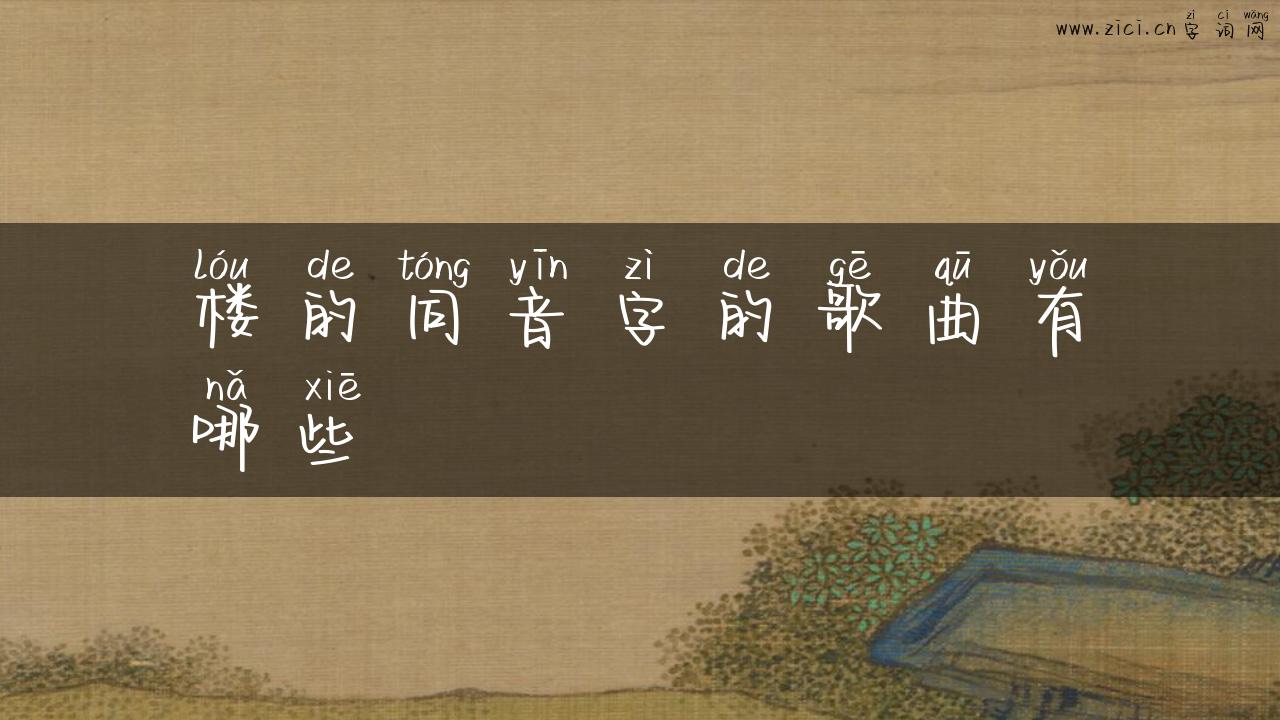 zì cí wǎng
www.zici.cn 字词网
lóu de tóng yīn zì de gē qū yǒu
楼的同音字的歌曲有
nǎ xiē
哪些